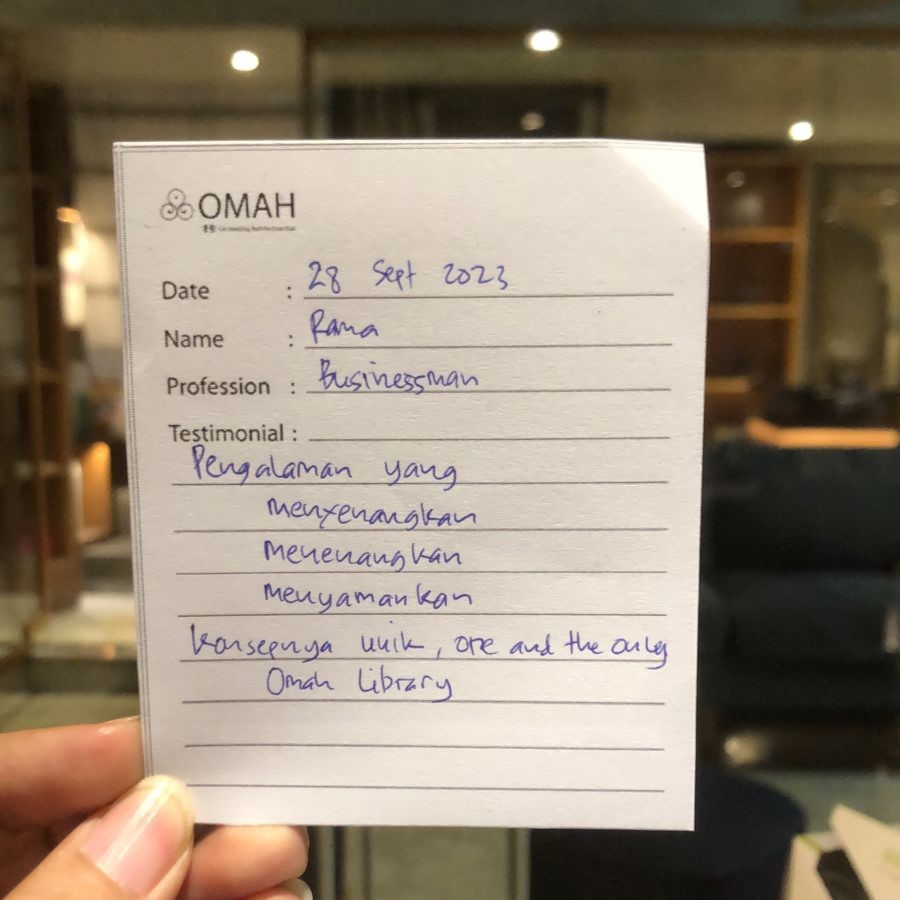 OMAH
Date : 28 Sept 2023
Name : Rama
Profession : Businessman
Testimonial :
Pengalaman yang
menyenangkan
menenangkan
menyamankan
konsepnya unik, one and the only
Omah Library